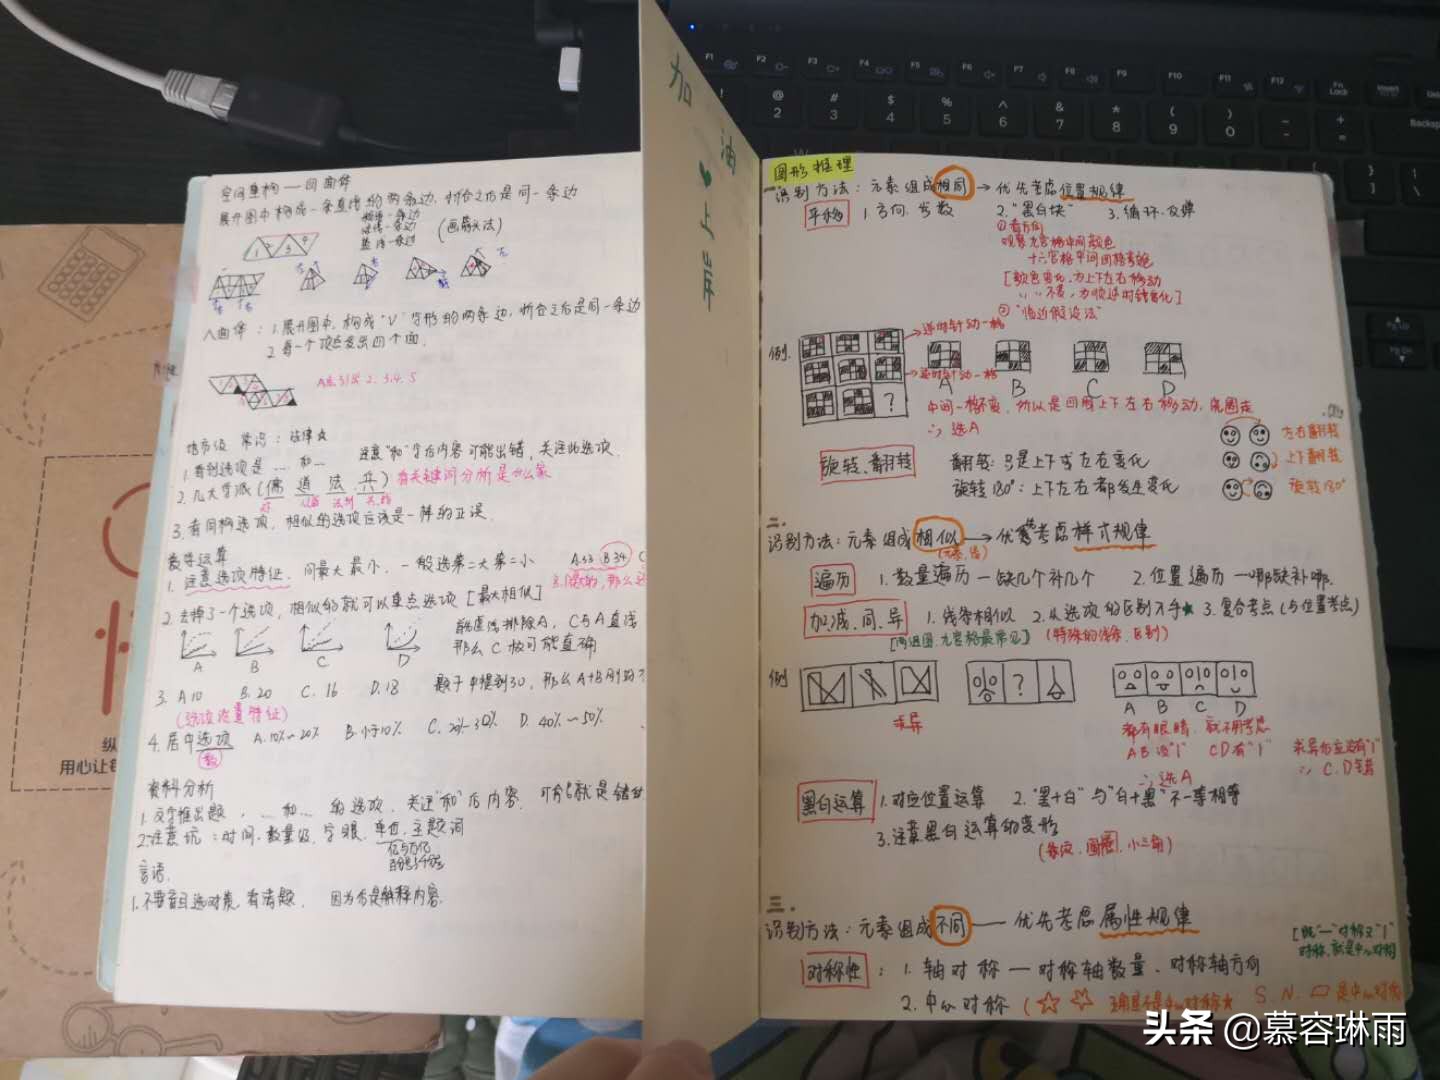 空间重构 — 四面体
展开图中构成一条直线的两条边，折合之后是同一条边
(画箭头法)
八面体：1.展开图中，构成“V”字形的两条边，折合之后是同一条边
2.每一个顶点发出四个面.
2.3.4.5
地方级 常识：法律☆
1.看到选项是 … 和 … 注意“和”字后内容可能出错，关注此选项.
2.几大学派(儒 道 法 兵) 看关键词分析是什么家
3.看同构选项，相似的选项应该是一样的正误.
数学运算
1.注意选项特征. 问最大最小，一般选第二大第二小 A.53 B.34
2.去掉了一个选项，相似的就可以重点选项[最大相似]
A B C D
能直接排除A, C与A直线
那么C极可能正确
3. A 10 B. 20 C. 16 D. 18 题干中提到30，那么A+B刚好
(选项设置特征)
4.居中选项 A.10%~20% B.小于10% C. 20%~30% D. 40%~50%
(数)
资料分析
1.文字推出题， … 和… 的选项，关注“和”后内容. 可能就是错
2.注意坑：时间.数量级.字眼.单位.主题词
亿与万亿
言语.
1.不要盲目选对策，看清题. 因为
加
油
♥
上
岸
图形推理
一.识别方法：元素组成相同 → 优先考虑位置规律
平移 1.方向.步数 2.“黑白块” 3.循环.反弹
①看方向
观察九宫格中间颜色
十六宫格中间四格颜色
[颜色变化,为上下左右移动
〃 〃不变,为顺逆时针变化]
②“临近假设法”
例. 逆时针动一格
逆时针动一格
?
A B C D
中间一格不变，所以是四周上下左右移动，绕圈走
∴ 选A
左右翻转
旋转、翻转 翻转：只是上下或左右变化 上下翻转
旋转180°：上下左右都发生变化 旋转180°
二.
识别方法：元素组成相似 → 优先考虑样式规律
(元素,线)
遍历 1.数量遍历 — 缺几个补几个 2.位置遍历 — 哪缺补哪.
加.减.同.异 1.线条相似 2.从选项的区别入手★ 3.复合考点(与位置考点)
[两组图.九宫格最常见] (特殊的线条.区别)
例 ?
求异
A B C D
都有眼睛，就不用考虑
AB 没“1” CD有“1” 求异
∴ C.D
∴选A
黑白运算 1.对应位置运算 2.“黑+白”与“白+黑”不一等相等
3.注意黑白运算的变形
(条纹.圆圈.小三角)
三.
识别方法：元素组成不同 — 优先考虑属性规律
[既“一”对称又“|”
对称,就是中心对称
对称性：1.轴对称 — 对称轴数量.对称轴方向
2.中心对称 ( 不是中心对称★ S.N. 是中心对称
纵
用心让
头条 @慕容琳雨